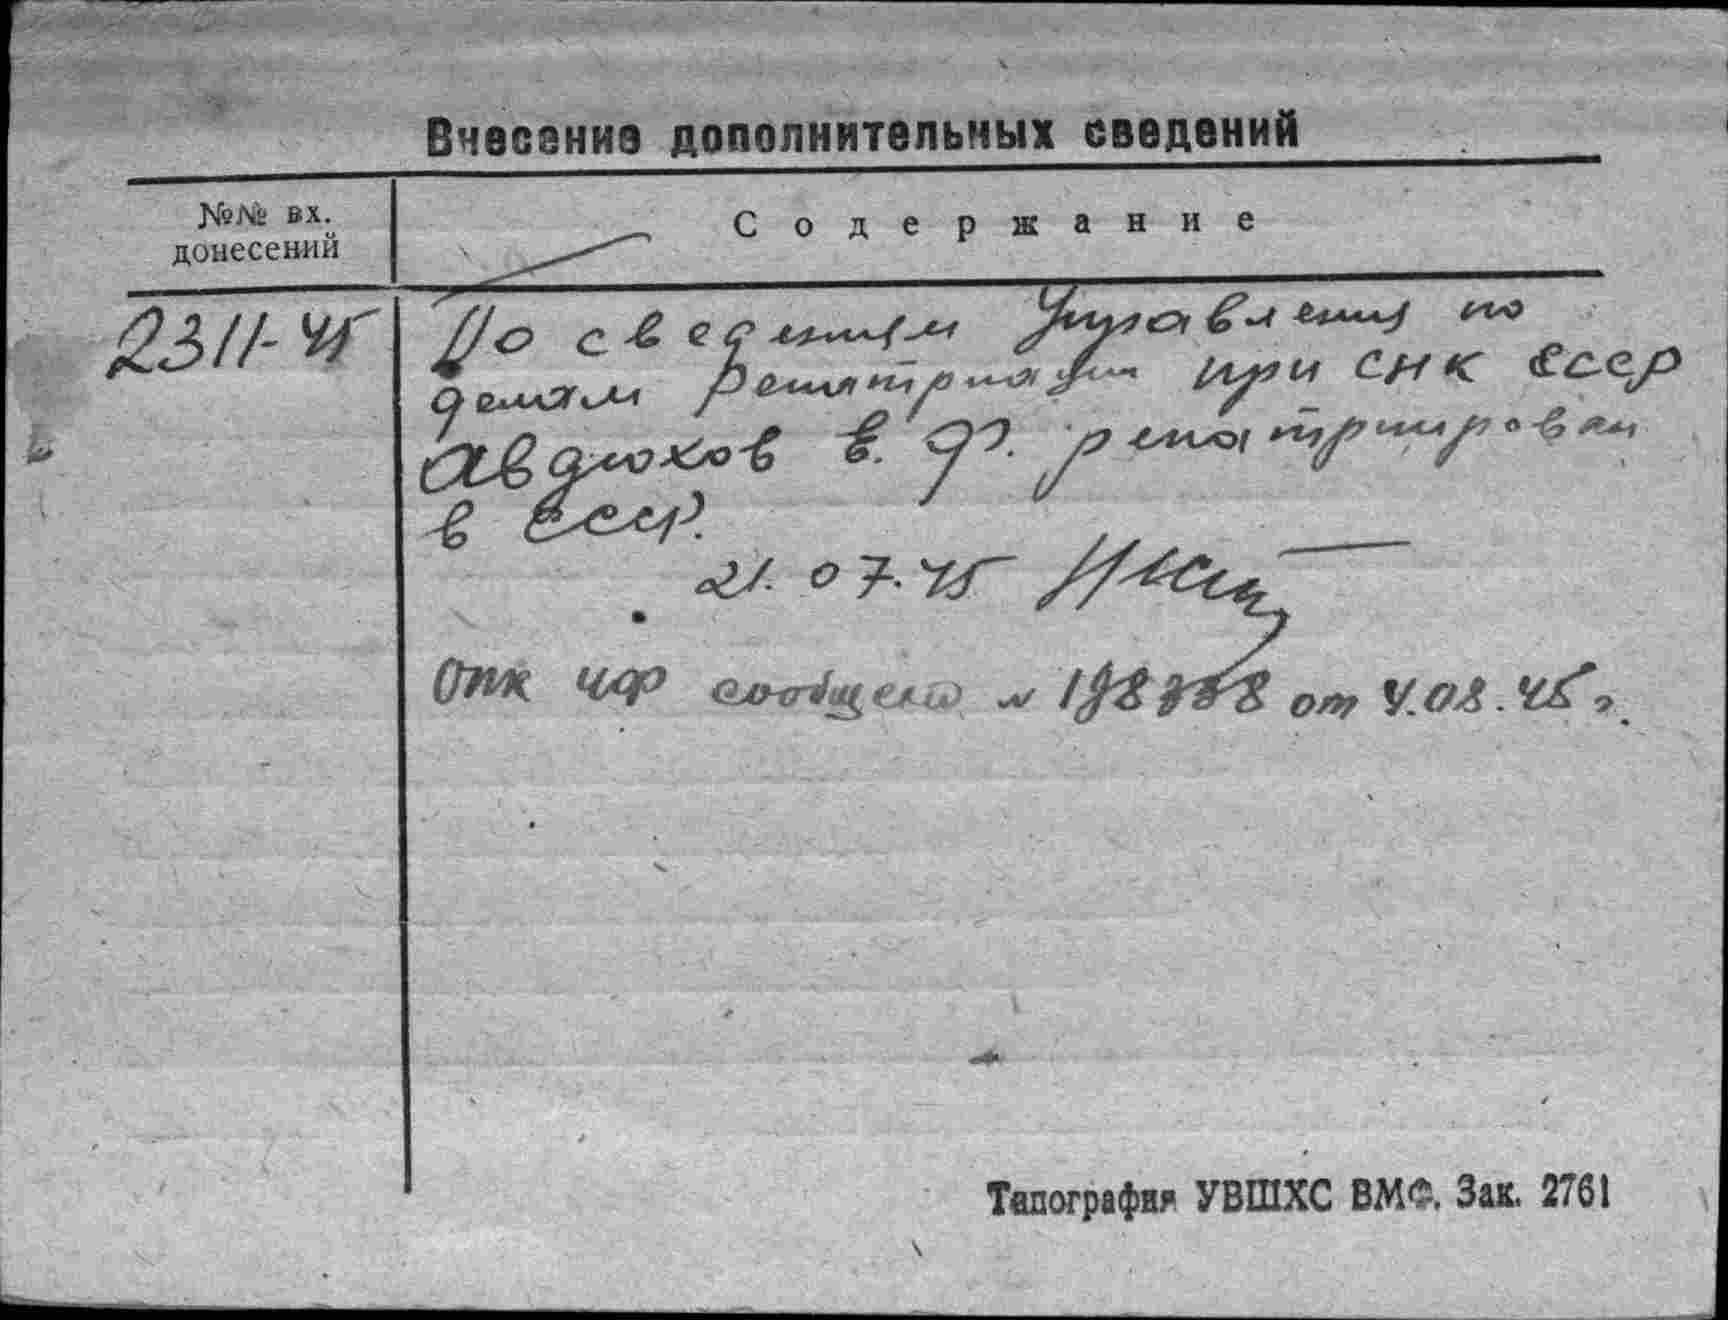 Внесение дополнительных сведений
№№ вх.
донесений
Содержание
2311-45
По сведениям Управления по
делам репатриации при СНК СССР
Авдюхов В. Ф. репатриирован
в СССР.
21.07.45
ОПК ЧФ сообщено № от 4.08.45 г.
Типография УВШХС ВМФ. Зак. 2761